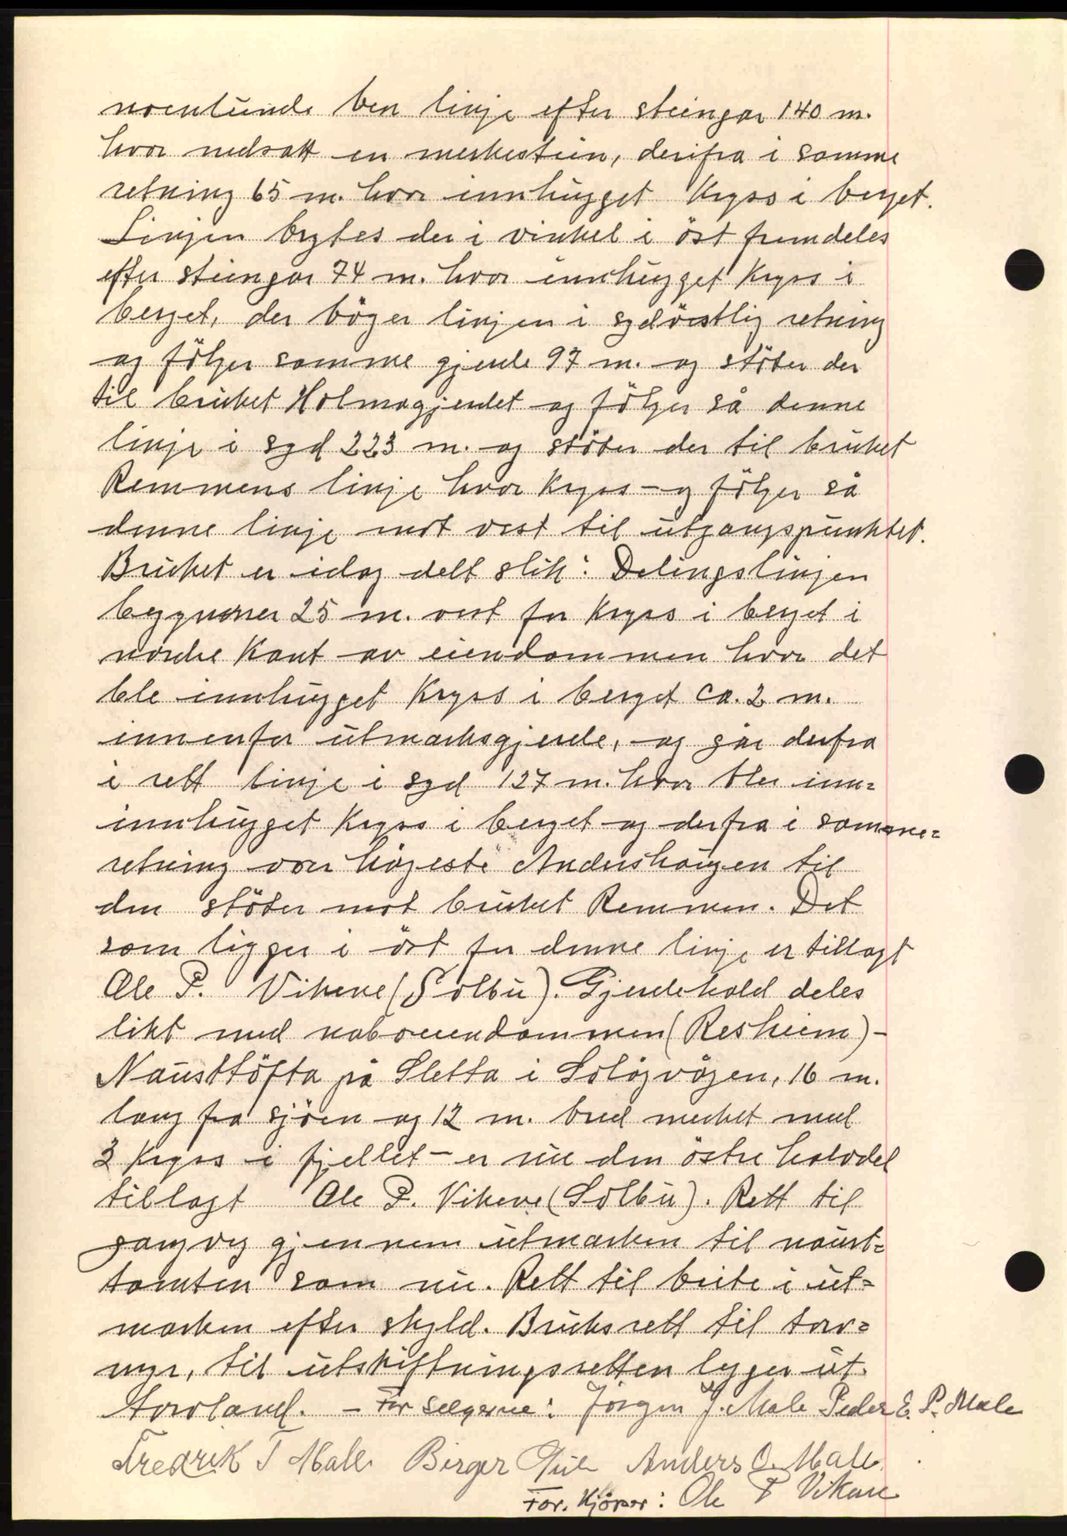 noenlunde ben linje efter steingar 140 m.
hvor nedsatt en merkestein, derifra i samme
retning 65 m. hvor innhugget Kryss i berget.
Linjen brytes der i vinkel i öst fremdeles
efter steingar 74 m. hvor innhugget Kryss i
berget, der böger linjen i sydöstlig retning
og fölger samme gjerde 97 m. og stöter der
til bruket Holmagjerdet og fölger så denne
linje i syd 223 m. og stöter der til bruket
Remmens linje hvor Kryss - og fölger så
denne linje mot vest til utgangspunktet.
Bruket er idag delt slik: Delingslinjen
begynner 25 m. vest for Kryss i berget i
nordre Kant av eiendommen hvor det
ble innhugget Kryss i berget ca. 2 m.
innenfor utmarksgjerde, og går derfra
i rett linje i syd 127 m. hvor bler inn=
innhugget Kryss i berget og derfra i samme=
retning over högeste Andershaugen til
den stöter mot bruket Remmen. Det
som ligger i öst for denne linje er tillagt
Ole P. Vikene (Solbu). Gjerdehold deles
likt med naboeiendommen (Resheim) -
Nausttöfta på Sletta i Solögvågen, 16 m.
lang fra sjöen og 12 m. bred merket med
3 Kryss i fjellet - er nu den östre halvdel
tillagt Ole P. Vikene (Solbu). Rett til
gangveg gjennem utmarken til naust=
tomten som nu. Rett til beite i ut=
marken efter skyld. Bruksrett til torv=
myr, til utskiftningsretten lyger ut
torvland. - For selgerne: Jörgen J. Male Peder E. P. Male
Fredrik T Male Birger Anders O. Male
For. Kjöper: Ole P Vikene